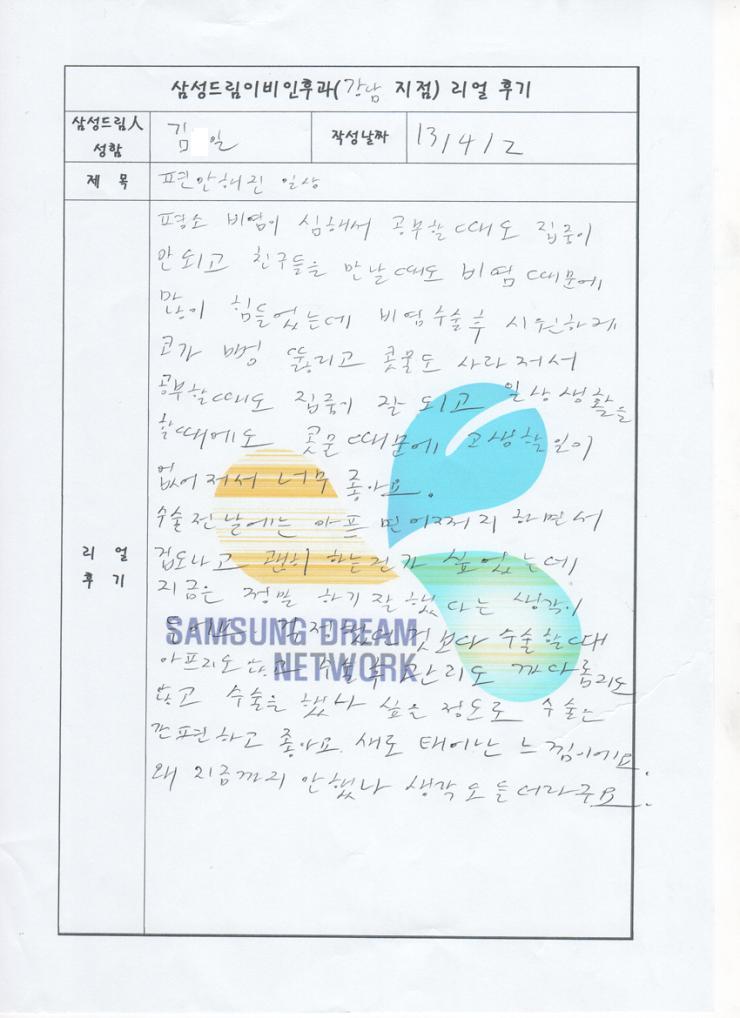 삼성드림이비인후과(강남 지점) 리얼 후기
삼성드림人 성함
김 일
작성날짜
13/4/2
제 목
편안해진 일상
리 얼 후 기
평소 비염이 심해서 공부할때도 집중이
안되고 친구들을 만날때도 비염 때문에
많이 힘들었는데 비염수술후 시원하게
코가 뻥 뚫리고 콧물도 사라져서
공부할때도 집중이 잘 되고 일상생활을
할때에도 콧물 때문에 고생할일이
없어져서 너무 좋아요.
수술전날에는 아프면 어쩌지 하면서
겁도나고 괜히 하는건가 싶었는데
지금은 정말 하기잘했다는 생각이
걱정했던것보다 수술할때
아프지도 않고 수술후 관리도 까다롭지도
않고 수술을 했나 싶을 정도로 수술은
간편하고 좋아요. 새로 태어난 느낌이에요.
왜 지금까지 안했나 생각도 들더라구요.
SAMSUNG DREAM
NETWORK